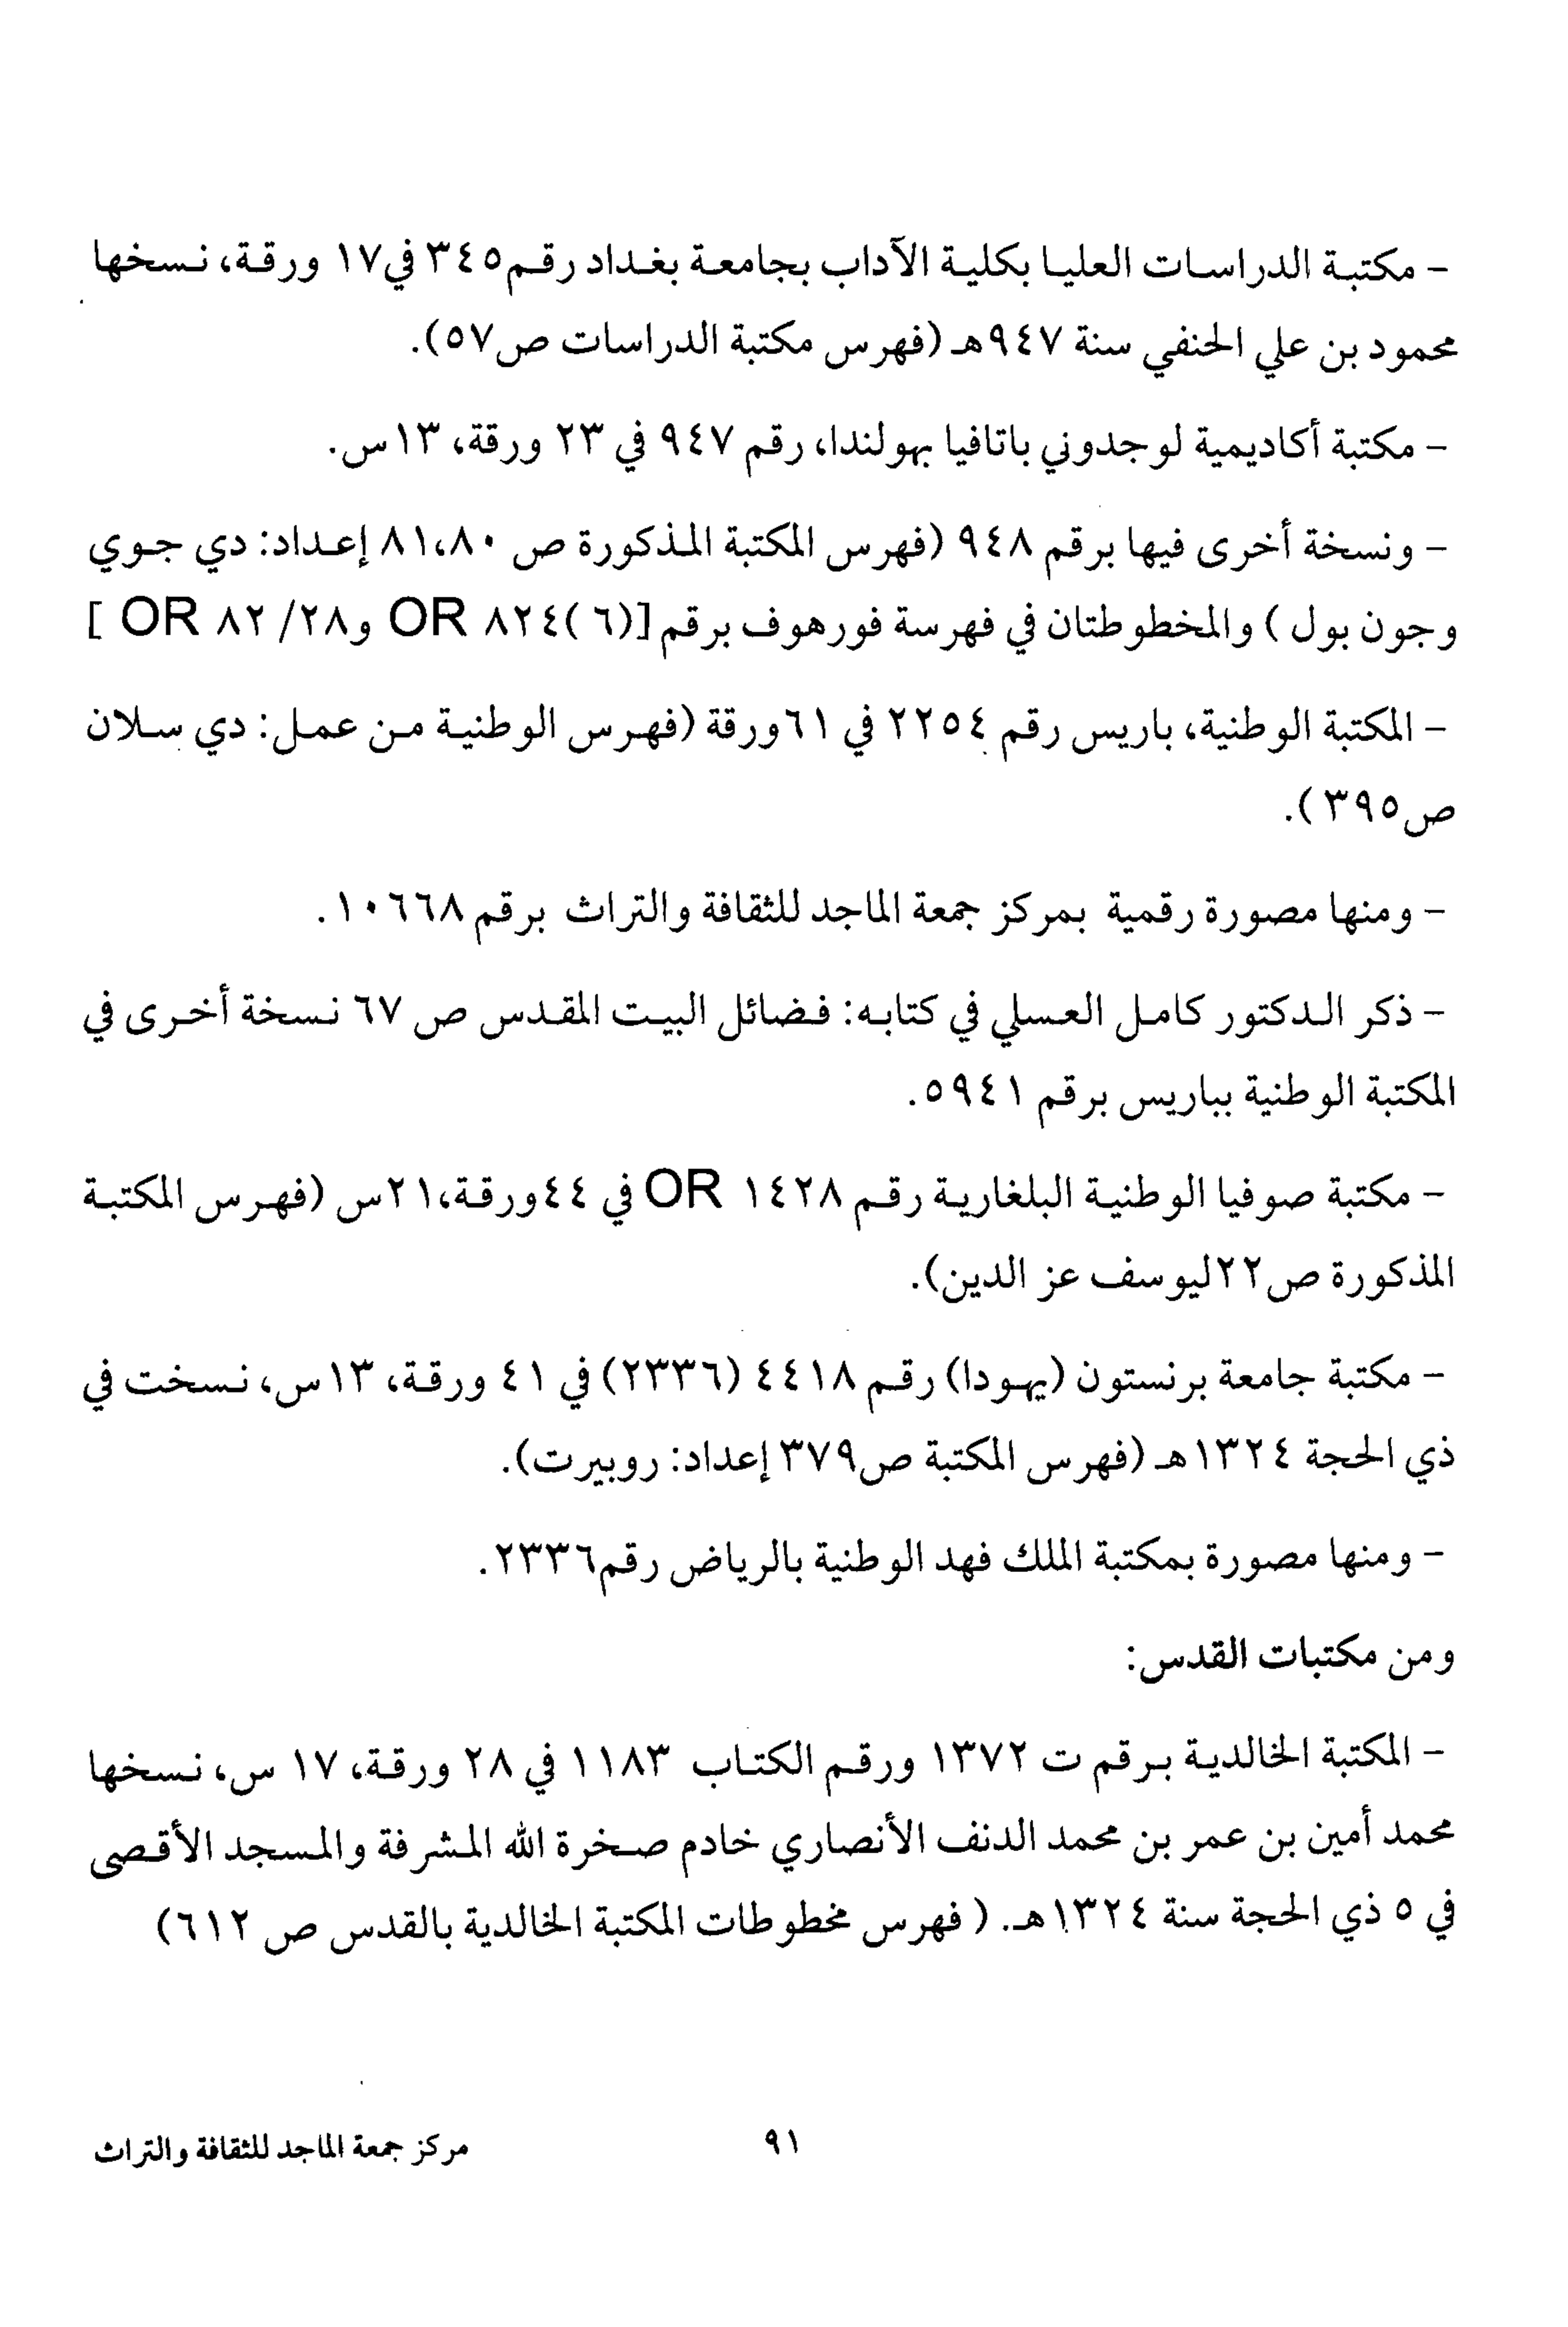 - مكتبة الدراسات العليا بكلية الآداب بجامعة بغداد رقم٣٤٥ في١٧ ورقة، نسخها
محمود بن علي الحنفي سنة ٩٤٧هـ (فهرس مكتبة الدراسات ص٥٧).
- مكتبة أكاديمية لوجدوني باتافيا بهولندا، رقم ٩٤٧ في ٢٣ ورقة، ١٣س.
- ونسخة أخرى فيها برقم ٩٤٨ (فهرس المكتبة المذكورة ص ٨١،٨٠ إعداد: دي جوي
وجون بول ) والمخطوطتان في فهرسة فورهوف برقم [(٦ )٨٢٤ OR و٢٨/ ٨٢ OR ]
- المكتبة الوطنية، باريس رقم ٢٢٥٤ في ٦١ورقة (فهرس الوطنية من عمل: دي سلان
ص٣٩٥ ).
- ومنها مصورة رقمية بمركز جمعة الماجد للثقافة والتراث برقم ١٠٦٦٨ .
- ذكر الدكتور كامل العسلي في كتابه: فضائل البيت المقدس ص ٦٧ نسخة أخرى في
المكتبة الوطنية بباريس برقم ٥٩٤١ .
- مكتبة صوفيا الوطنية البلغارية رقم ١٤٢٨ OR في ٤٤ورقة،٢١س (فهرس المكتبة
المذكورة ص٢٢ليوسف عز الدين).
- مكتبة جامعة برنستون (يهودا) رقم ٤٤١٨ (٢٣٣٦) في ٤١ ورقة، ١٣س، نسخت في
ذي الحجة ١٣٢٤هـ (فهرس المكتبة ص٣٧٩ إعداد: روبيرت).
- ومنها مصورة بمكتبة الملك فهد الوطنية بالرياض رقم٢٣٣٦.
ومن مكتبات القدس:
- المكتبة الخالدية برقم ت ١٣٧٢ ورقم الكتاب ١١٨٣ في ٢٨ ورقة، ١٧ س، نسخها
محمد أمين بن عمر بن محمد الدنف الأنصاري خادم صخرة الله المشرفة والمسجد الأقصى
في ٥ ذي الحجة سنة ١٣٢٤هـ. ( فهرس مخطوطات المكتبة الخالدية بالقدس ص ٦١٢)
٩١
مركز جمعة الماجد للثقافة والتراث